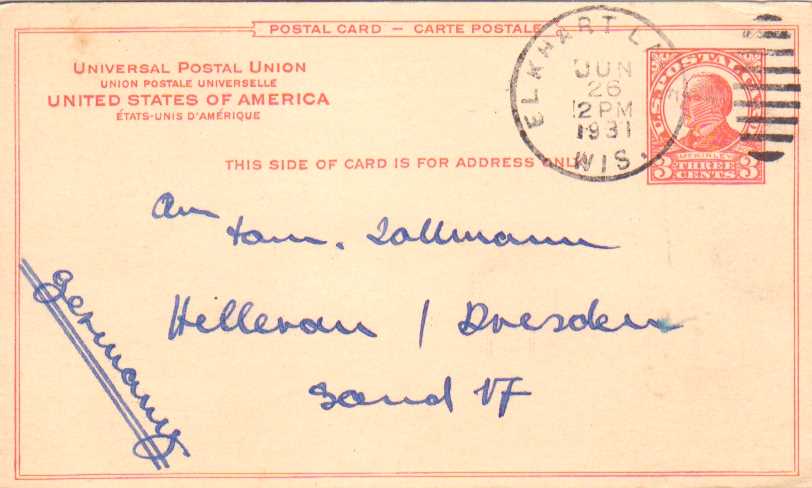 POSTAL CARD – CARTE POSTALE
UNIVERSAL POSTAL UNION
UNION POSTALE UNIVERSELLE
UNITED STATES OF AMERICA
ÉTATS-UNIS D'AMÉRIQUE
THIS SIDE OF CARD IS FOR ADDRESS ONLY
ELKHART
WIS.
JUN
26
2 PM
1931
U.S. POSTAL
MCKINLEY
3 THREE CENTS 3
An
Fam. Zollmann
Hellerau / Dresden
Sand
Germany